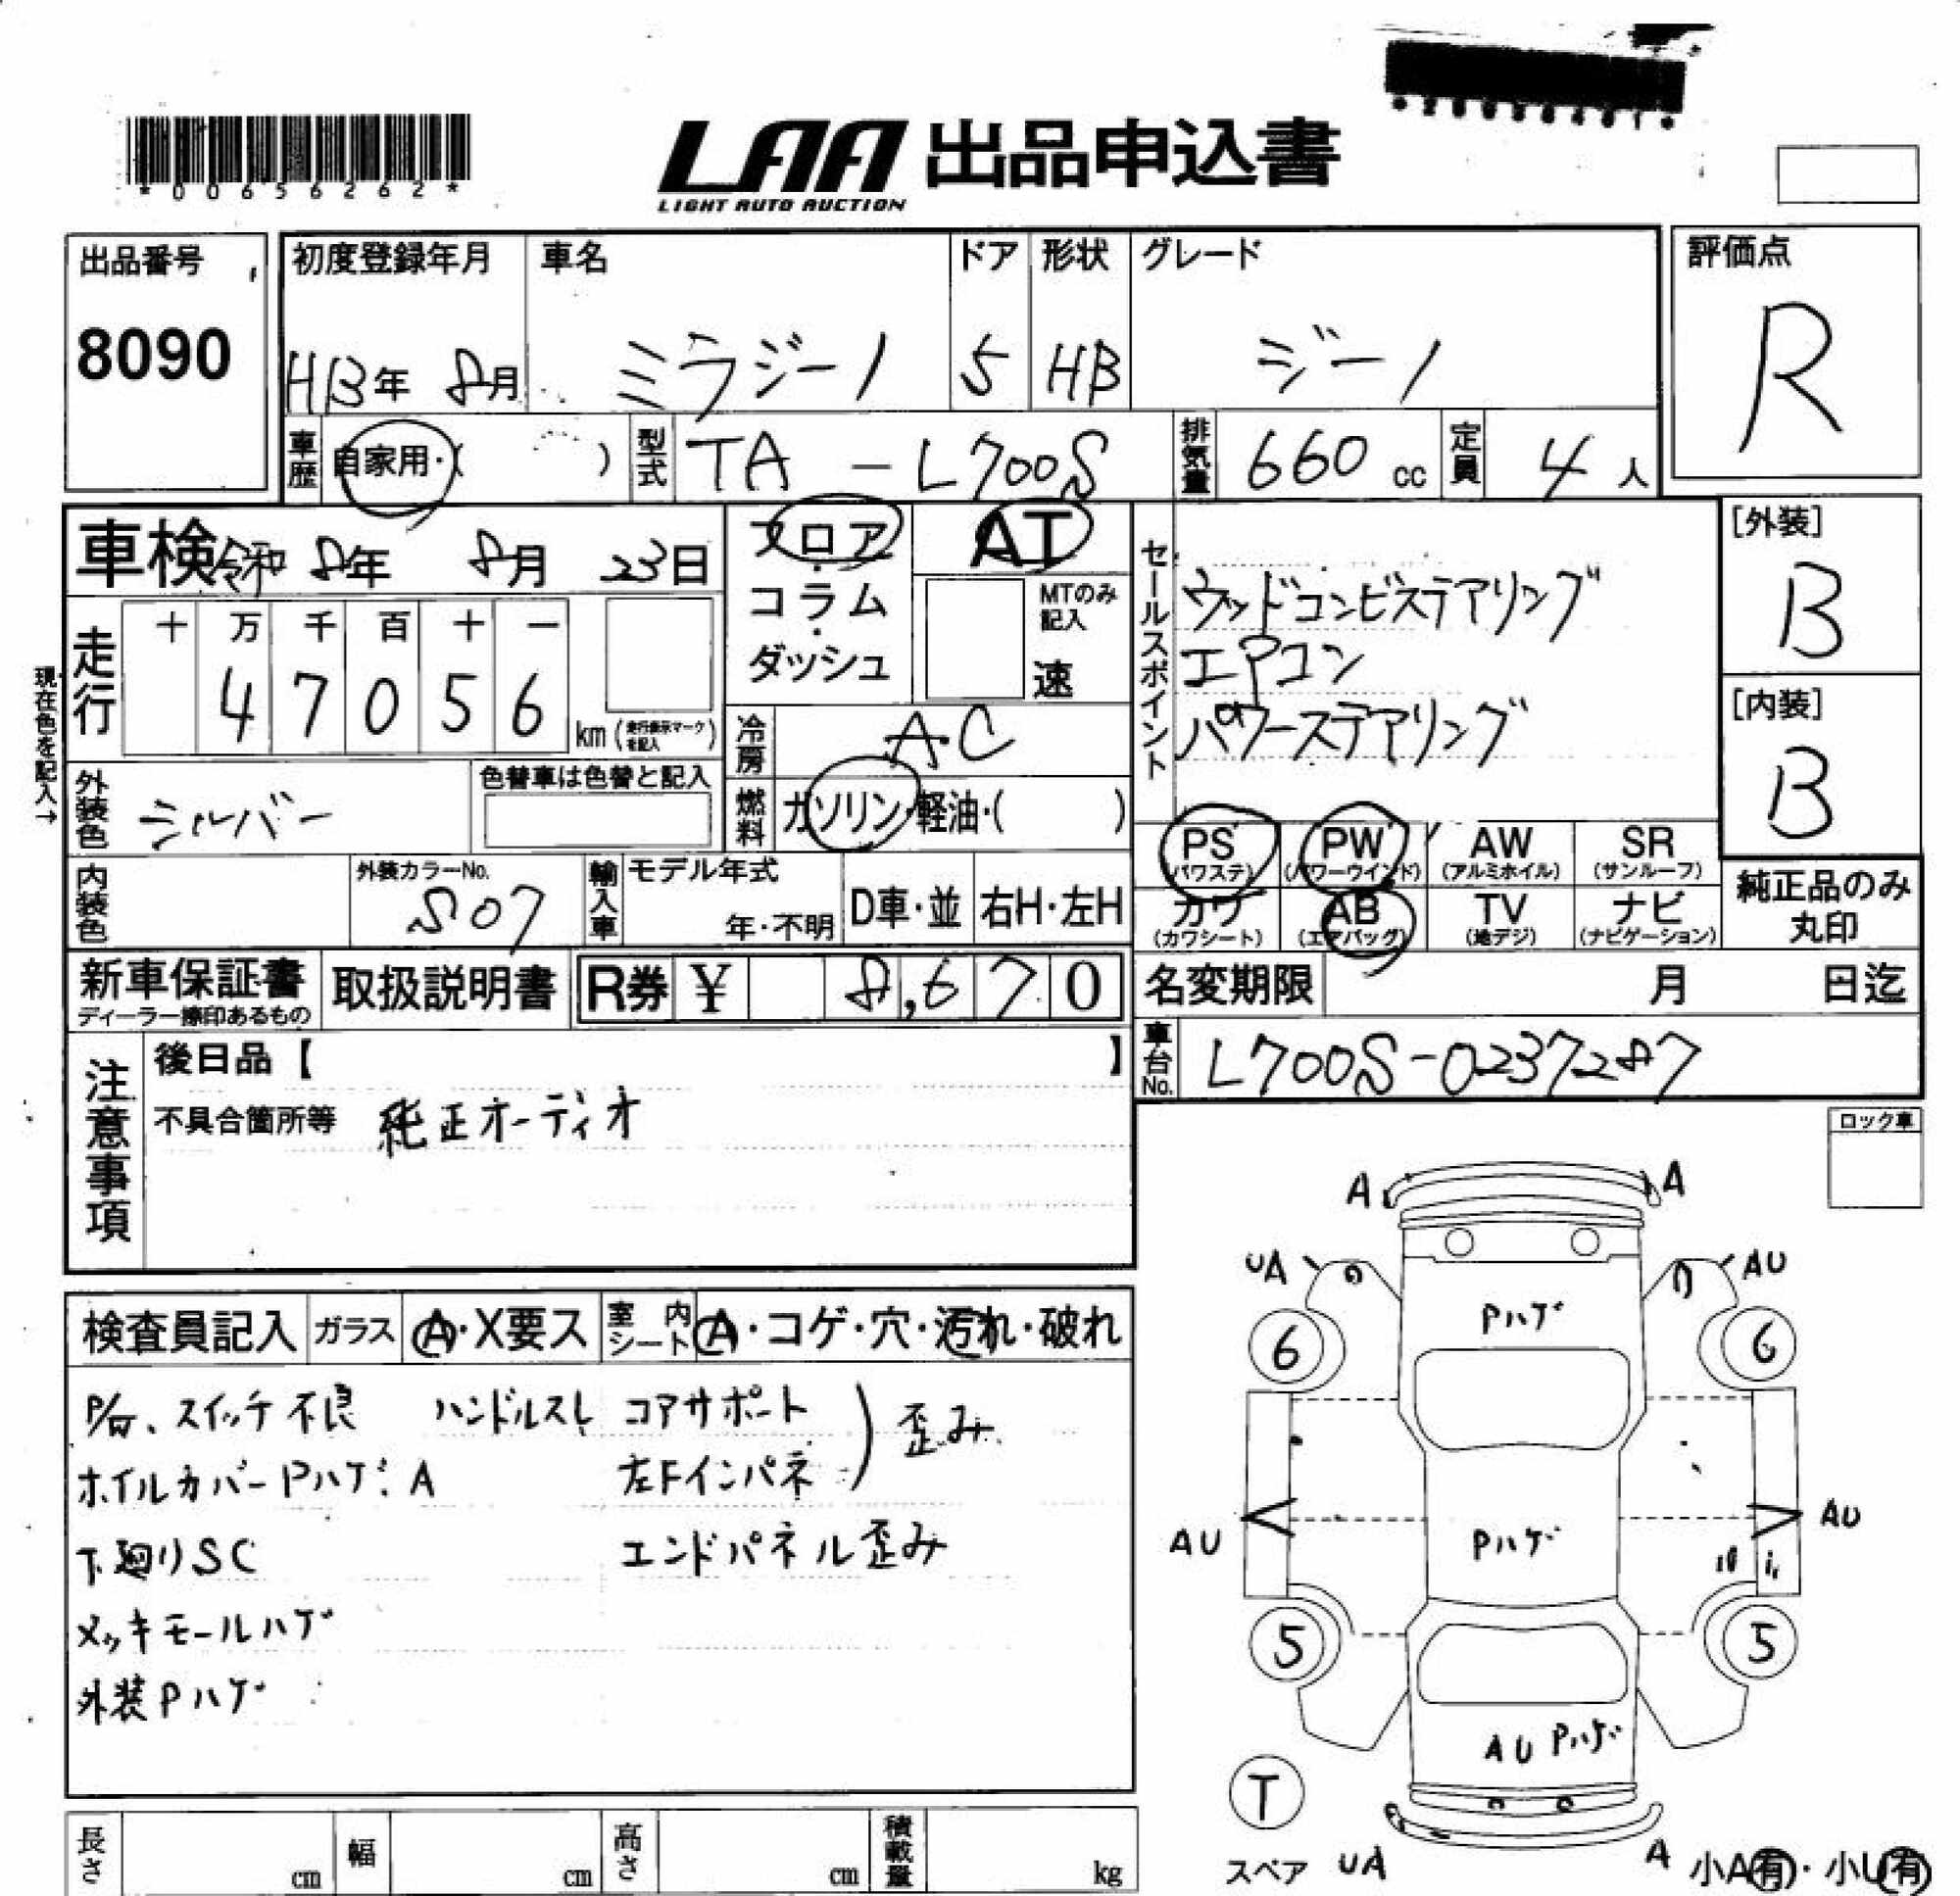 *00656262*
LAA 出品申込書
LIGHT AUTO AUCTION
出品番号
8090
初度登録年月
H13年 8月
車名
ミラジーノ
ドア
5
形状
HB
グレード
ジーノ
評価点
R
車歴
自家用・( )
型式
TA - L700S
排気量
660 cc
定員
4 人
車検 令和 8年 8月 23日
フロア
・
コラム
・
ダッシュ
AT
MTのみ
記入
速
セールスポイント
ウッドコンビステアリング
エアコン
パワーステアリング
[外装]
B
[内装]
B
現在色を記入→
走行
十 万 千 百 十 一
4 7 0 5 6
km (走行表示マークを記入)
冷房
A.C
外装色
シルバー
色替車は色替と記入
燃料
ガソリン・軽油・( )
PS
(パワステ)
PW
(パワーウインド)
AW
(アルミホイル)
SR
(サンルーフ)
内装色
外装カラーNo.
S07
輸入車
モデル年式
年・不明
D車・並
右H・左H
カワ
(カワシート)
AB
(エアバッグ)
TV
(地デジ)
ナビ
(ナビゲーション)
純正品のみ
丸印
新車保証書
ディーラー捺印あるもの
取扱説明書
R券 ¥ 8,670
名変期限 月 日迄
車台No.
L700S-0237287
注意事項
後日品【 】
不具合箇所等 純正オーディオ
ロック車
検査員記入
ガラス
A・X要ス
室内
シート
A・コゲ・穴・汚れ・破れ
スイッチ不良 ハンドルスレ コアサポート
左Fインパネ
歪み
ホイルカバーPハゲ.A
下廻りSC
エンドパネル歪み
メッキモールハゲ
外装Pハゲ
A A
UA AU
Pハゲ
6 6
AU AU
Pハゲ
5 5
AU Pハゲ
T
スペア
UA A
小A有・小U有
長さ cm
幅 cm
高さ cm
積載量 kg